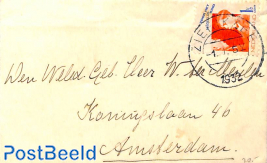 ZIE
1932
Den Weld. Geb. Heer W. ter Meulen
Koningslaan 46
Amsterdam.
PostBeeld